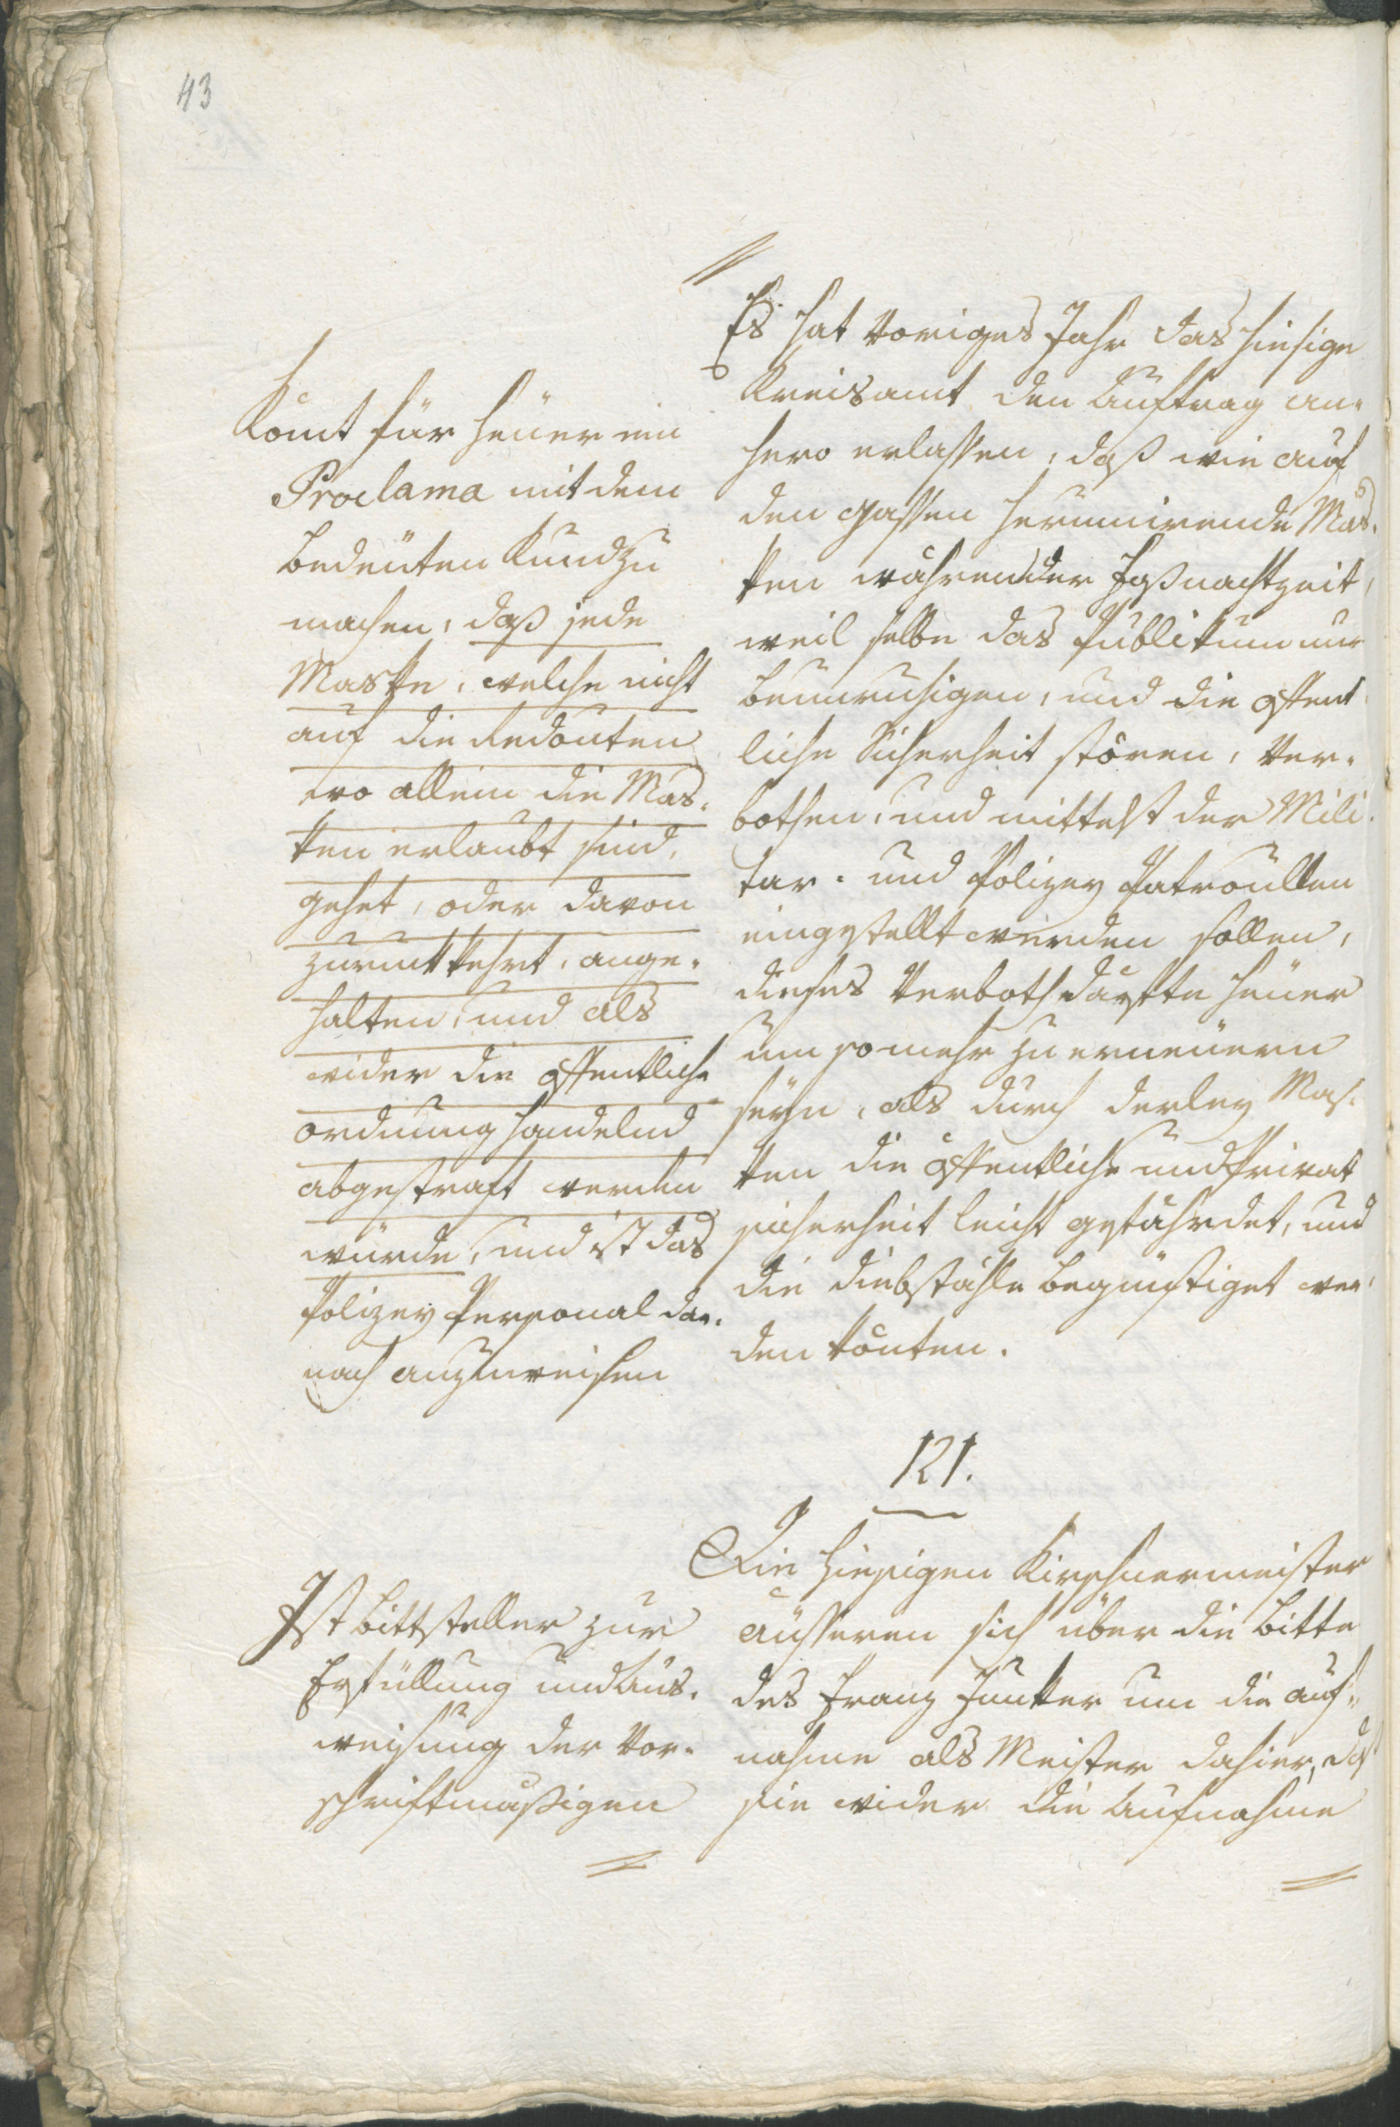 43
Es hat voriges Jahr das hiesige
Kreisamt den Auftrag an-
hero erlassen, daß wie auf
den Gassen herumirende Mas-
ken während der Faßnachtzeit,
weil selbe das Publikum nur
beunruhigen, und die öffent
liche Sicherheit stören, ver-
bothen, und mittelst der Mili-
tar- und Polizey Patroullen
eingestellt werden sollen,
dieses Verboth dürfte heuer
um so mehr zu erneuern
seyn, als durch derley Mas-
ken die öffentliche und Privat
sicherheit leicht gefährdet, und
die Diebstähle begünstiget wer-
den könten.
Kömt für heuer ein
Proclama mit dem
bedeuten kund zu
machen, daß jede
Maske, welche nicht
auf die Redouten
wo allein die Mas-
ken erlaubt sind,
gehet, oder davon
zurückkehrt, ange-
halten, und als
wider die öffentliche
ordnung handelnd
abgestraft werden
würde, und ist das
Polizey Personal dar-
nach anzuweisen
121.
Die hiesigen Kirschnermeister
äusseren sich über die bitte
des Franz Junker um die auf-
nahme als Meister dahier, daß
sie wider die Aufnahme
Ist bittsteller zur
Erfüllung und Aus-
weisung der vor-
schriftmäßigen